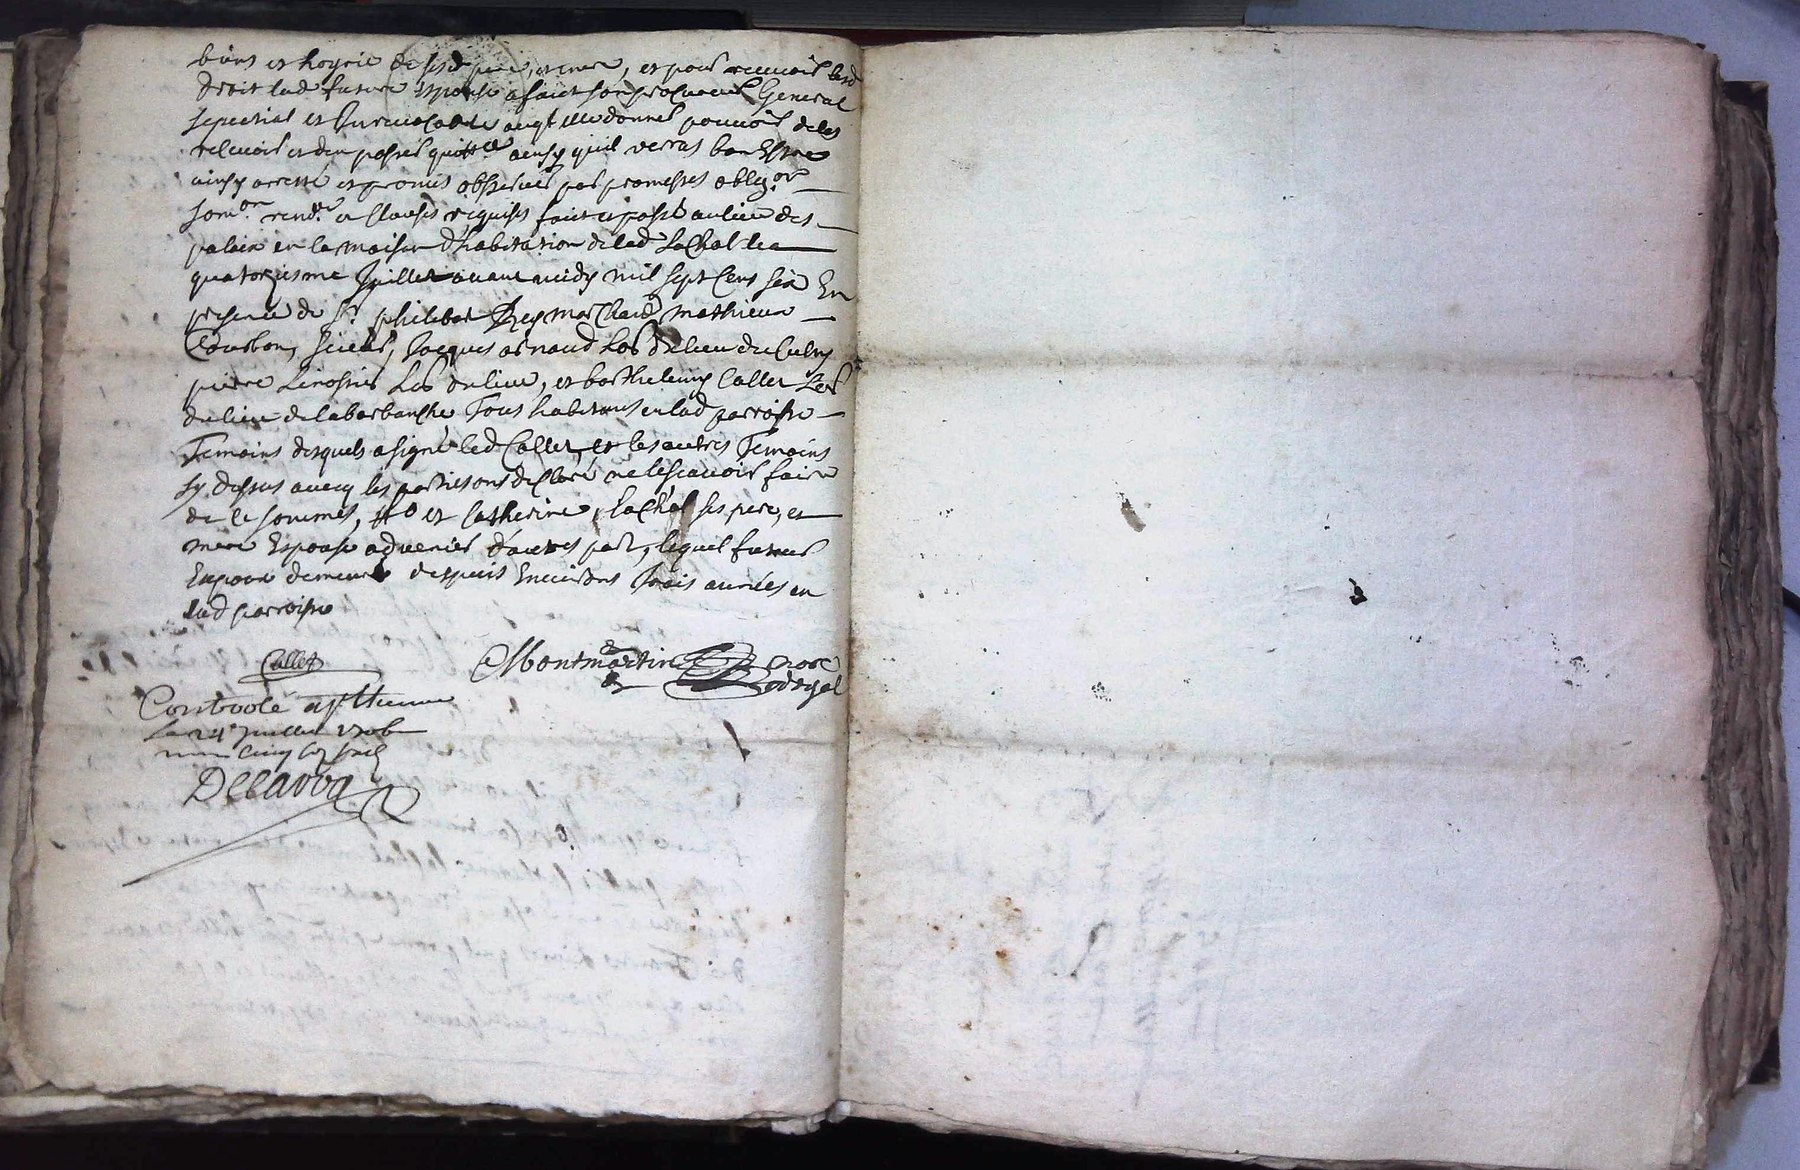 biens et hoyrie de sesd pere, et mere, et pour recevoir lesd
droit lad future espouse a faict son procureur General
special et Inrevocable auqt elle donne pouvoir de les
recevoir et den passer quittce ainsy quil verras bon Estre
ainsy arresté et promis observer par promesses obligon
somon renon et Clauses requises faict et passé au lieu des
palais en la maison d'habitation de lad Lachal le
quatorziesme Juillet avant midy mil sept Cens six En
presence de Sr philibert Rey marchand mathieu
Courbon, Jacques arnaud Lab du lieu de
pierre Linossier Lab dud lieu, et barthelemy Callet Lab
du lieu de labarbanche Tous habitans en lad parroisse
Temoins desquels a signé led Callet, et les autres Temoins
sy dessus avecq les parties ont declaré ne le scavoir faire
de ce sommés, et Catherine Lachal ses pere, et
mere Espouse advenir d'autres part, lequel futeur
Espoux demeure despuis Environs trois années en
lad parroisse
Callet
Montmartin
Controlé a st Etienne
Le 24e Juillet 1706
Delarva